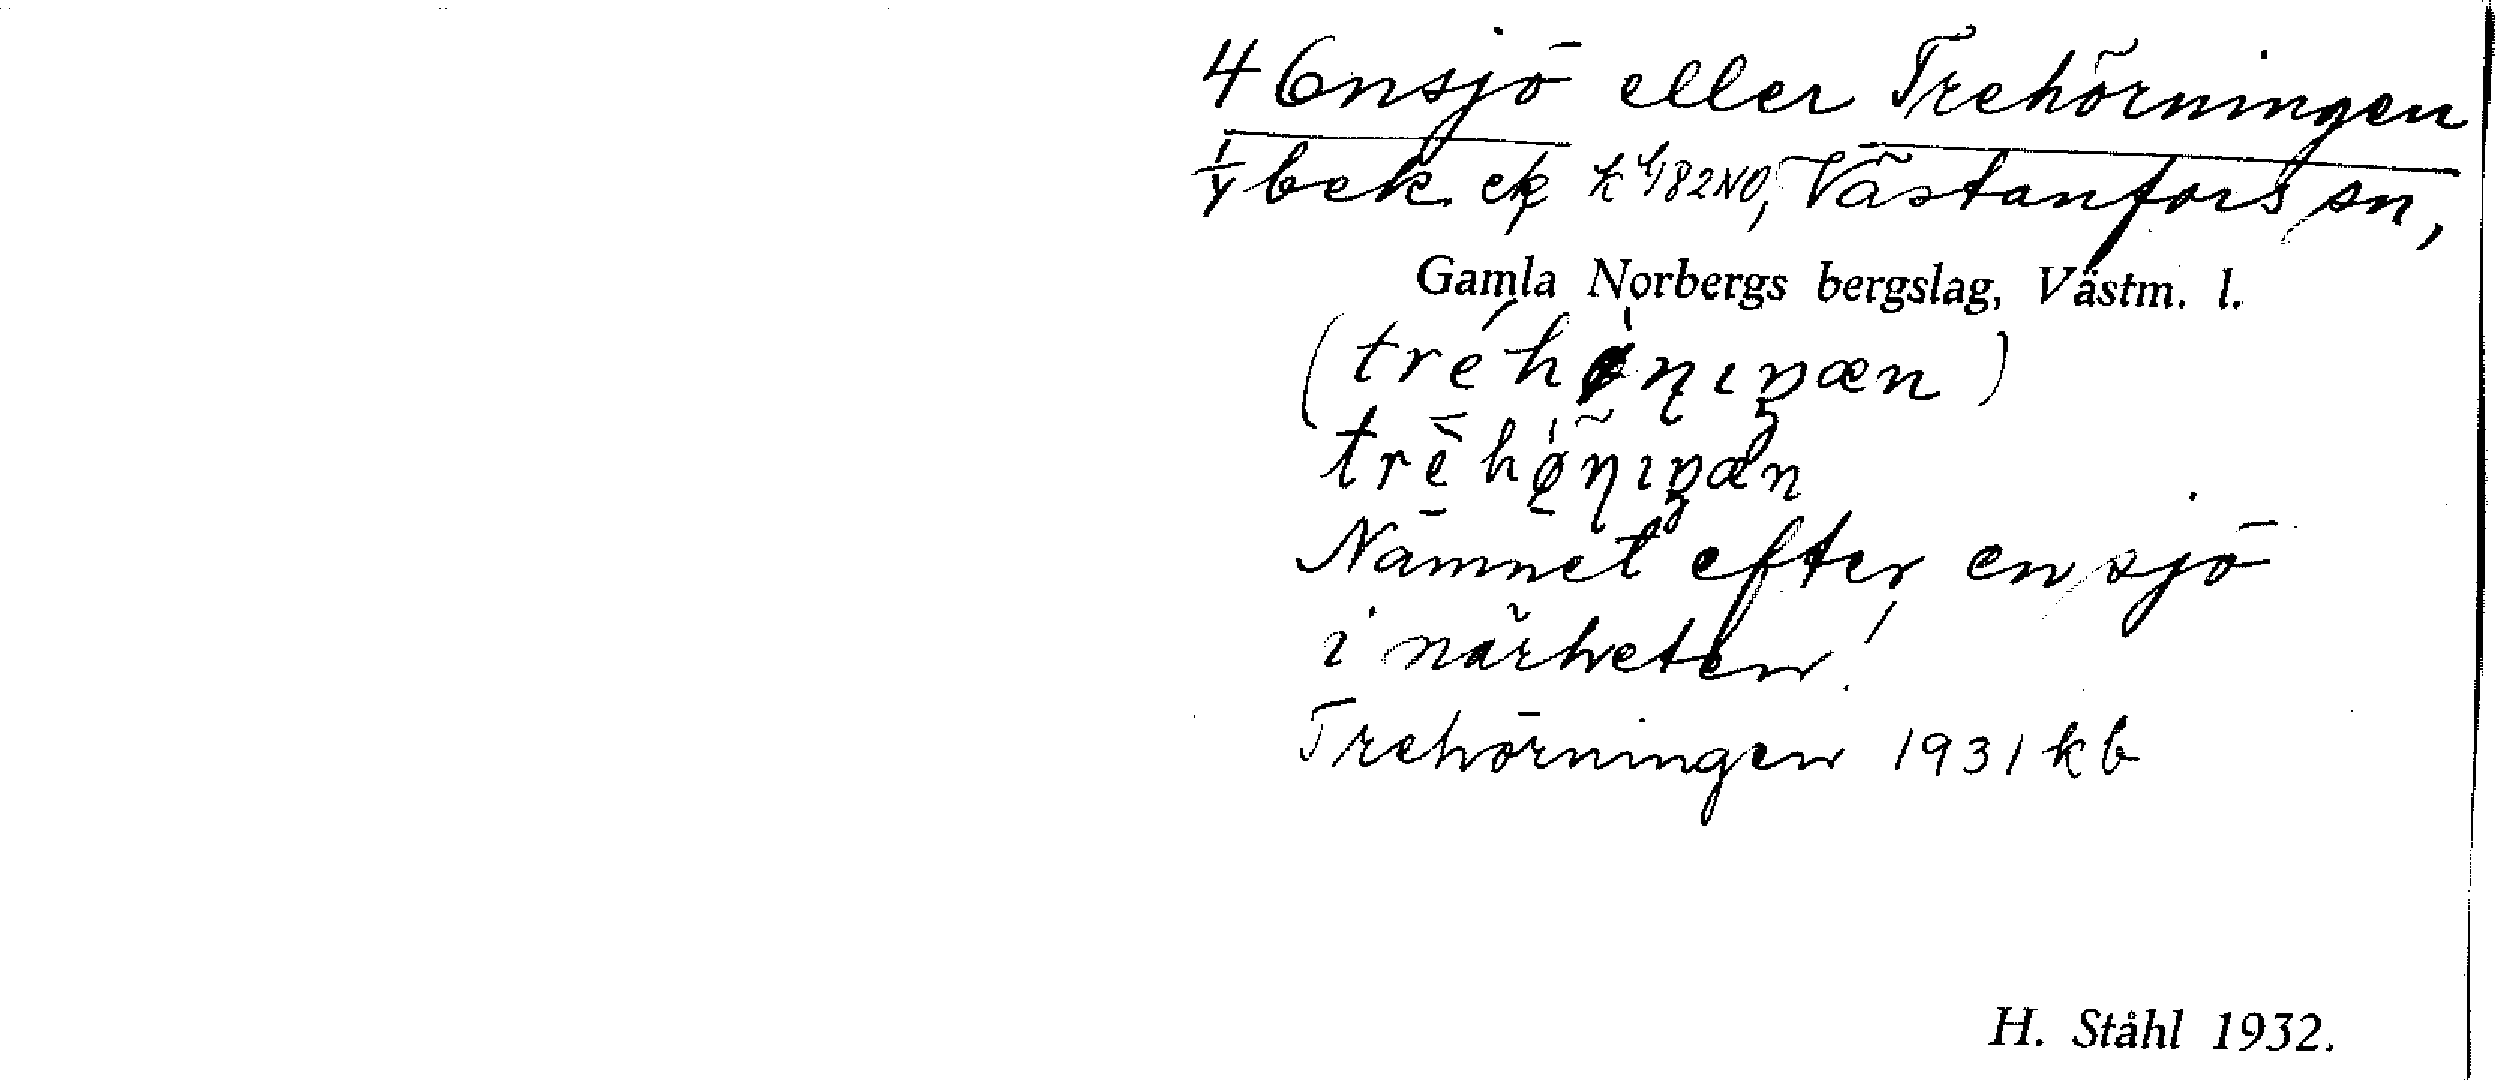 4 Ensjö eller Trehörningen
1/4 bek. ek K 4/82NO, Västanfors sn,
Gamla Norbergs bergslag, Västm. l.
Namnet efter en sjö
i närheten.
Trehörningen 1931 kb
H. Ståhl 1932.